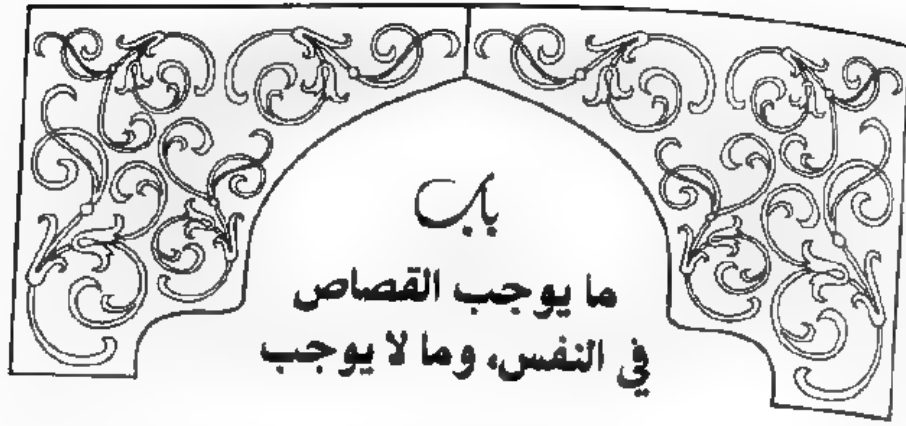 باب
ما يوجب القصاص
في النفس، وما لا يوجب